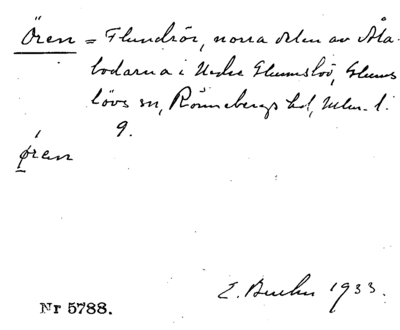 Ören = Flundrör, norra delen av Åla-
bodarna i Nedre Glumslöv, Glums
lövs sn, Rönnebergs hd, Mlm. l.
9.
øren
E. Buchn 1933.
Nr 5788.